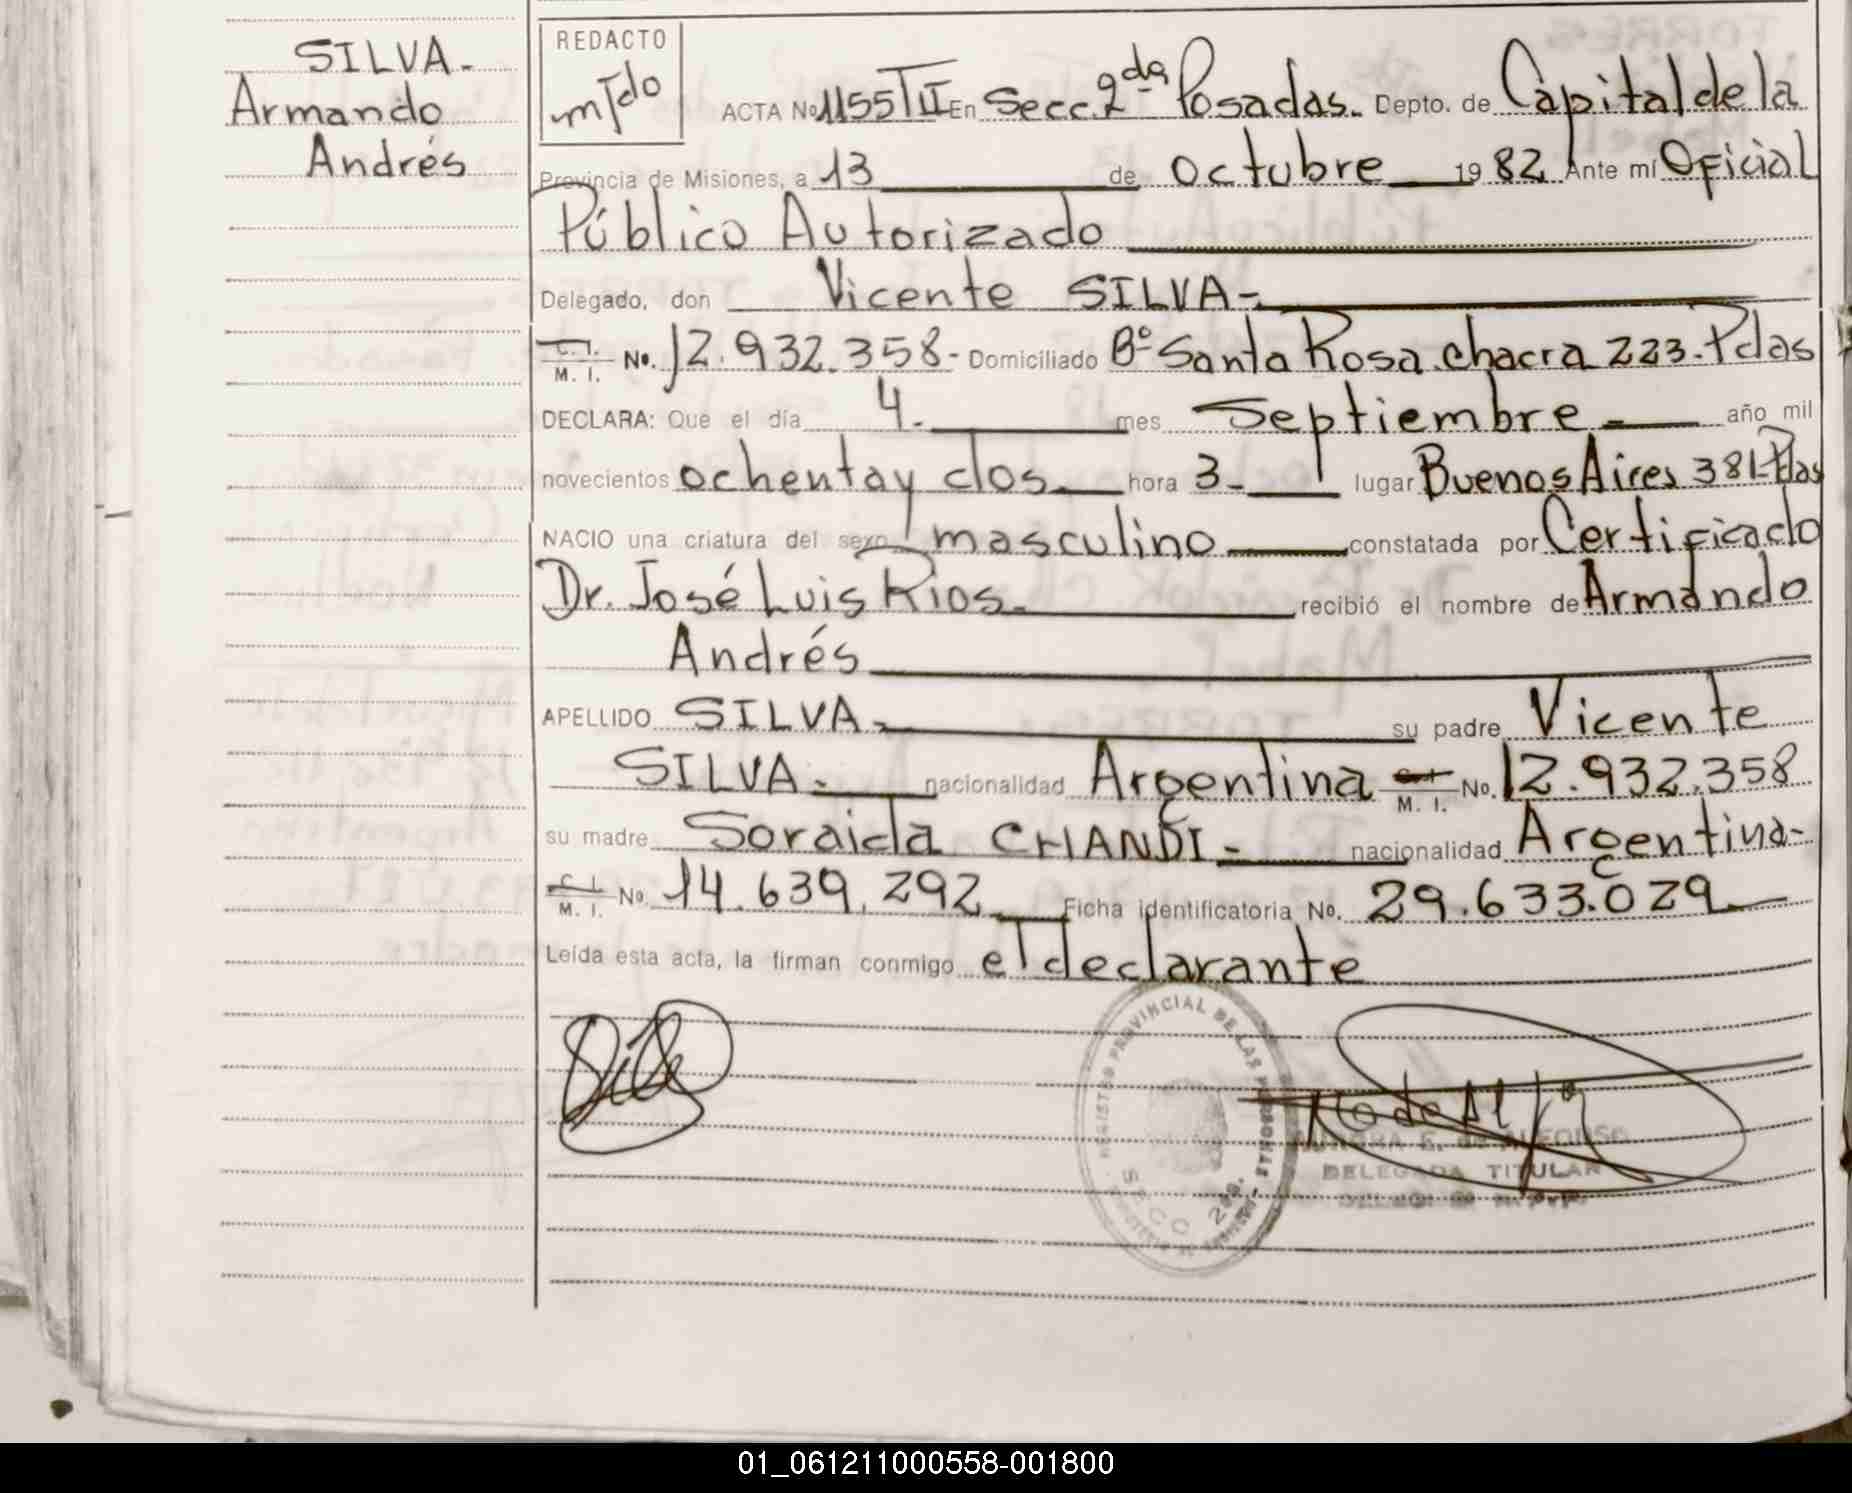 SILVA.
Armando
Andrés
REDACTO
mTdo
ACTA No 1155 TII En Secc. 2da Posadas. Depto. de Capital de la
Provincia de Misiones, a 13 de octubre 19 82 Ante mí Oficial
Público Autorizado
Delegado, don Vicente SILVA-
C. I. M. I. No. 12.932.358- Domiciliado Bº Santa Rosa chacra 223-Pdas
DECLARA: Que el día 4. mes Septiembre año mil
novecientos ochenta y dos. hora 3- lugar Buenos Aires 381-Pdas
NACIO una criatura del sexo masculino constatada por Certificado
Dr. José Luis Rios. recibió el nombre de Armando
Andrés
APELLIDO SILVA- su padre Vicente
SILVA. nacionalidad Argentina M. I. No. 12.932.358
su madre Soraida CHANDI- nacionalidad Argentina-
C. I. M. I. No. 14.639.292 Ficha identificatoria No. 29.633.029
Leída esta acta, la firman conmigo el declarante
REGISTRO PROVINCIAL DE LAS PERSONAS
SECC 2da.
DE ALFONSO
DELEGADA TITULAR
01_061211000558-001800